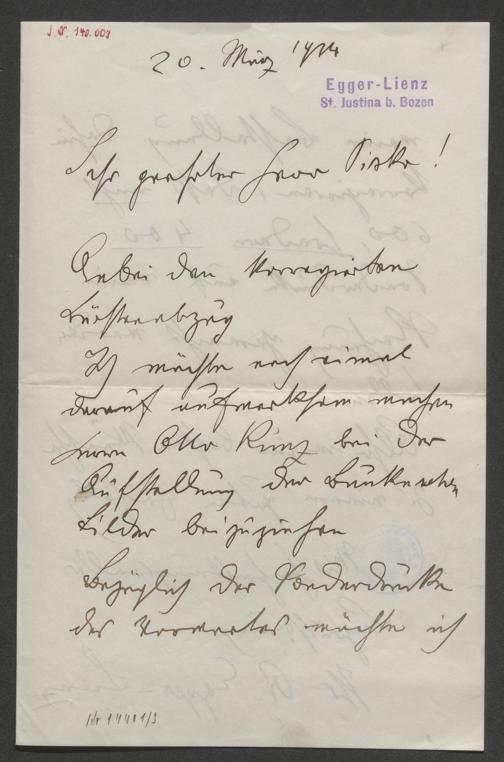 J. N. 140.003
20. März 1924
Egger-Lienz
St. Justina b. Bozen
Sehr geehrter Herr Piska!
Anbei den korregierten
Bürstenabzug
Ich möchte noch einmal
darauf aufmerksam machen
Herrn Otto Kunz bei der
Aufstellung der
Bilder beizuziehen
Bezüglich der Sonderdrucke
des Vorwortes möchte ich